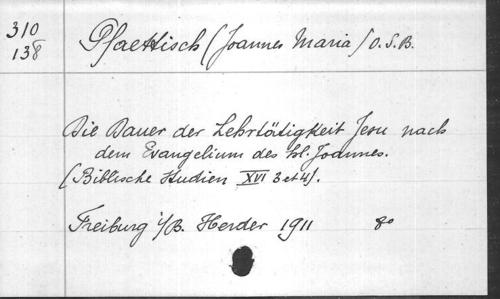 310
138
Pfaettisch (Joannes Maria) O.S.B.
Die Dauer der Lehrtätigkeit Jesu nach
dem Evangelium des hl. Joannes.
(Biblische Studien XVI 3 et 4).
Freiburg i/B. Herder 1911 8°